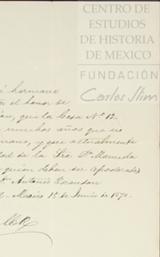 CENTRO DE
ESTUDIOS
DE HISTORIA
DE MEXICO
FUNDACIÓN
Carlos Slim
hermano
el honor de
que la Casa Nº 12
muchos años que no
y que actualmente
de la Sra. Dª Manuela
quien deben ser apoderados
Dn Antonio Escandon
Mexico 15 de Junio de 1870.